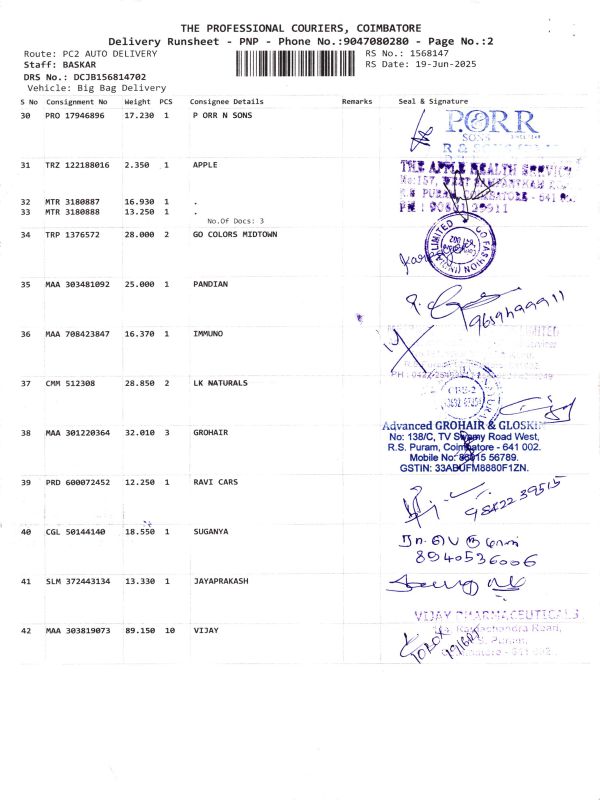 THE PROFESSIONAL COURIERS, COIMBATORE
Delivery Runsheet - PNP - Phone No.:9047080280 - Page No.:2
Route: PC2 AUTO DELIVERY RS No.: 1568147
Staff: BASKAR RS Date: 19-Jun-2025
DRS No.: DCJB156814702
Vehicle: Big Bag Delivery
S No Consignment No Weight PCS Consignee Details Remarks Seal & Signature
30 PRO 17946896 17.230 1 P ORR N SONS
P.ORR
SONS
31 TRZ 122188016 2.350 1 APPLE
THE APPLE HEALTH SERVICE
32 MTR 3180887 16.930 1 .
33 MTR 3180888 13.250 1 .
No.Of Docs: 3
34 TRP 1376572 28.000 2 GO COLORS MIDTOWN
GO FASHION (INDIA) LIMITED
35 MAA 303481092 25.000 1 PANDIAN
36 MAA 708423847 16.370 1 IMMUNO
37 CMM 512308 28.850 2 LK NATURALS
38 MAA 301220364 32.010 3 GROHAIR
Advanced GROHAIR & GLOSKIN
No: 138/C, TV Swamy Road West,
R.S. Puram, Coimbatore - 641 002.
Mobile No: 56789.
GSTIN: 33ABUFM8880F1ZN.
39 PRD 600072452 12.250 1 RAVI CARS
9842239515
40 CGL 50144140 18.550 1 SUGANYA
8940536006
41 SLM 372443134 13.330 1 JAYAPRAKASH
VIJAY PHARMACEUTICALS
42 MAA 303819073 89.150 10 VIJAY